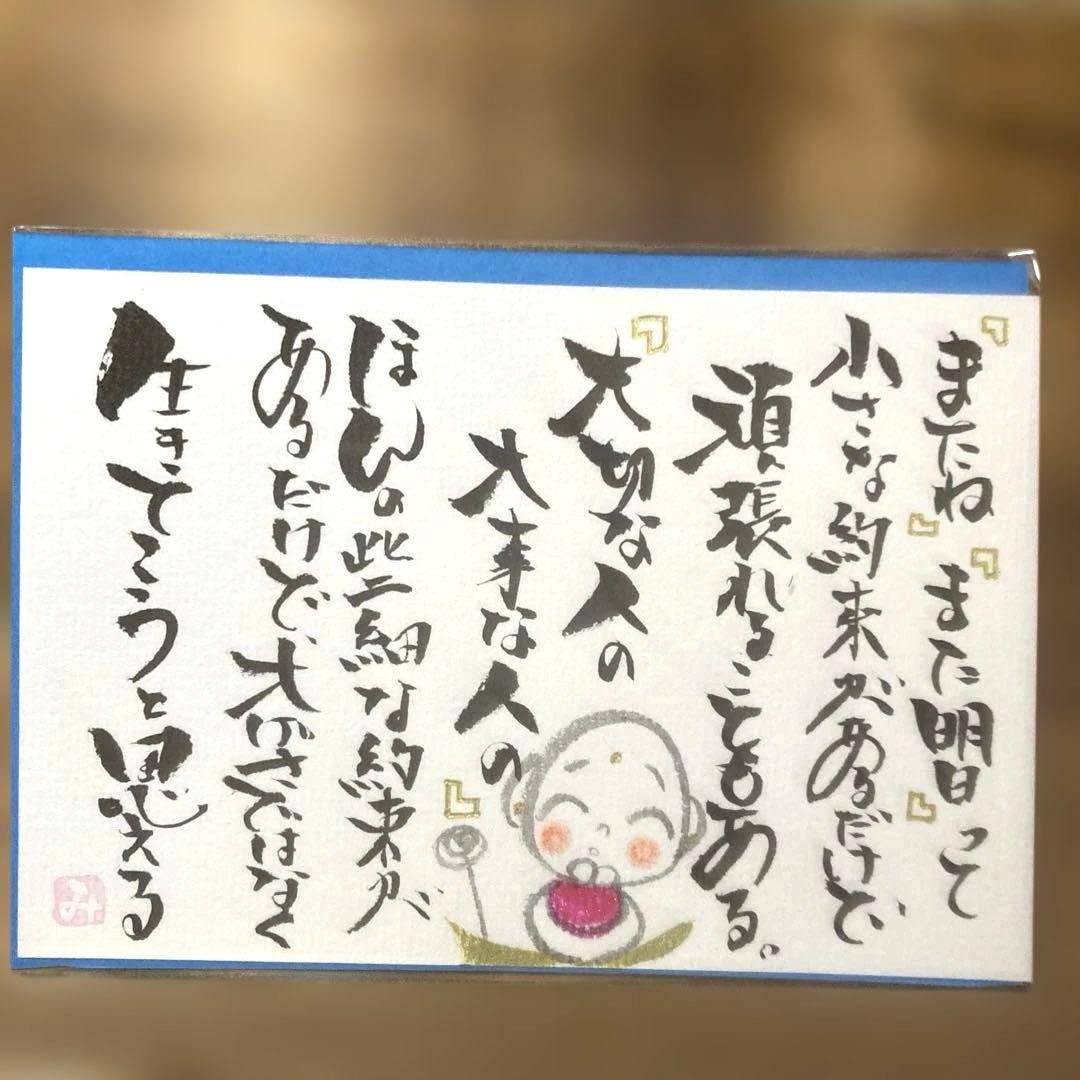 『またね』『また明日』って
小さな約束があるだけで
頑張れることもある。
『大切な人の
大事な人の』
ほんの些細な約束が
あるだけで、大げさではなく
生きてこうと思える